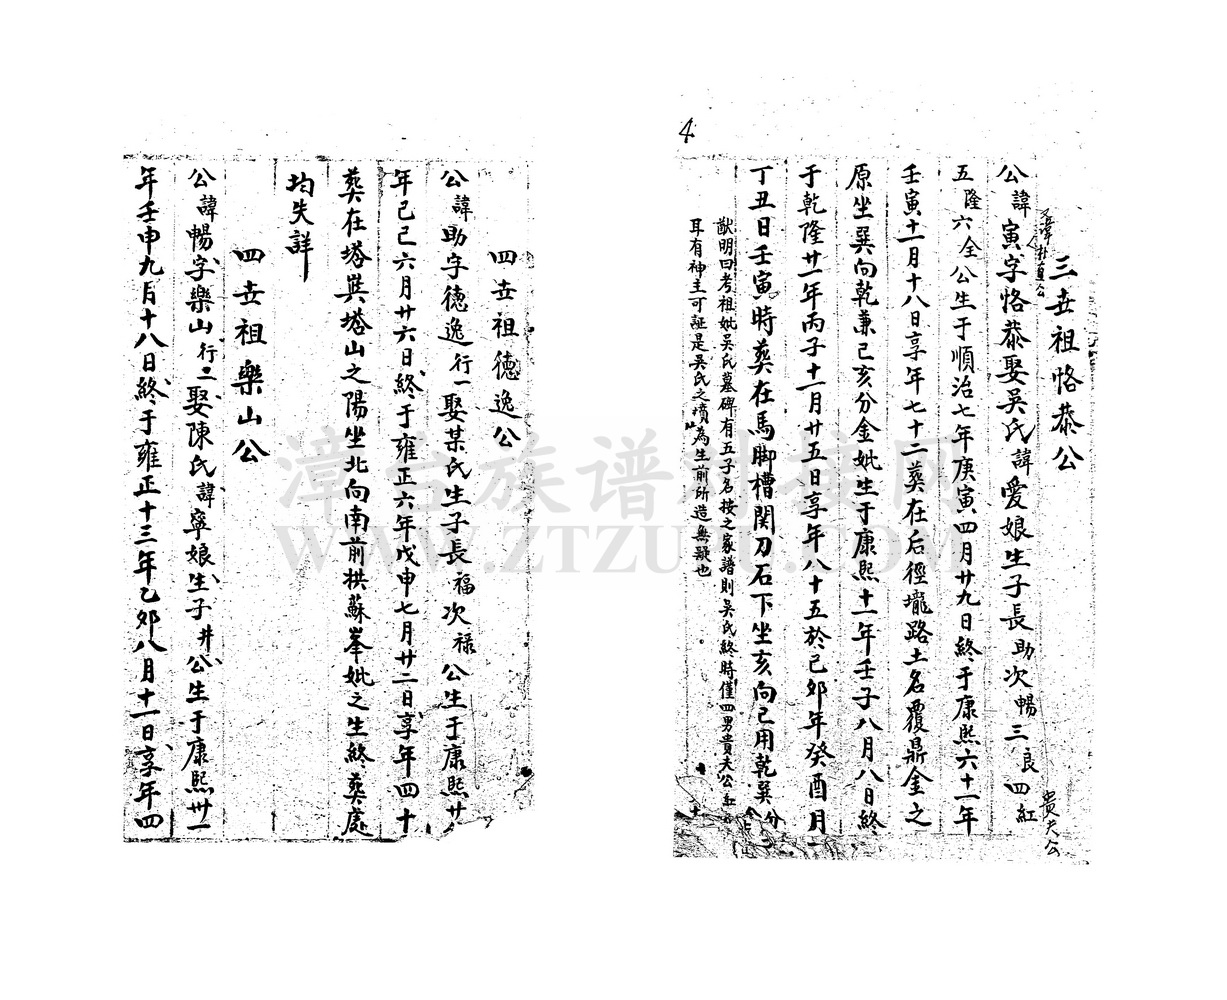 4
三世祖恪恭公
又諱朴直公
公諱寅字恪恭娶吳氏諱愛娘生子長助次暢三良四紅
貴夫公
五隆六全公生于順治七年庚寅四月廿九日終于康熙六十一年
壬寅十一月十八日享年七十二葬在后徑壠路土名覆鼎金之
原坐巽向乾兼己亥分金妣生于康熙十一年壬子八月八日終
于乾隆廿一年丙子十一月廿五日享年八十五於己卯年癸酉月
丁丑日壬寅時葬在馬腳槽関刀石下坐亥向己用乾巽分
猷明曰考祖妣吳氏墓碑有五子名按之家譜則吳氏終時僅四男貴夫公
耳有神主可証是吳氏之墳為生前所造無疑也
四世祖德逸公
公諱助字德逸行一娶某氏生子長福次祿公生于康熙廿
年己己六月廿六日終于雍正六年戊申七月廿二日享年四十
葬在塔巽塔山之陽坐北向南前拱蘇峯妣之生終葬處
均失詳
四世祖樂山公
公諱暢字樂山行二娶陳氏諱寧娘生子井公生于康熙卅一
年壬申九月十八日終于雍正十三年乙卯八月十一日享年四
漳台族谱对接网
WWW.ZTZUPU.COM